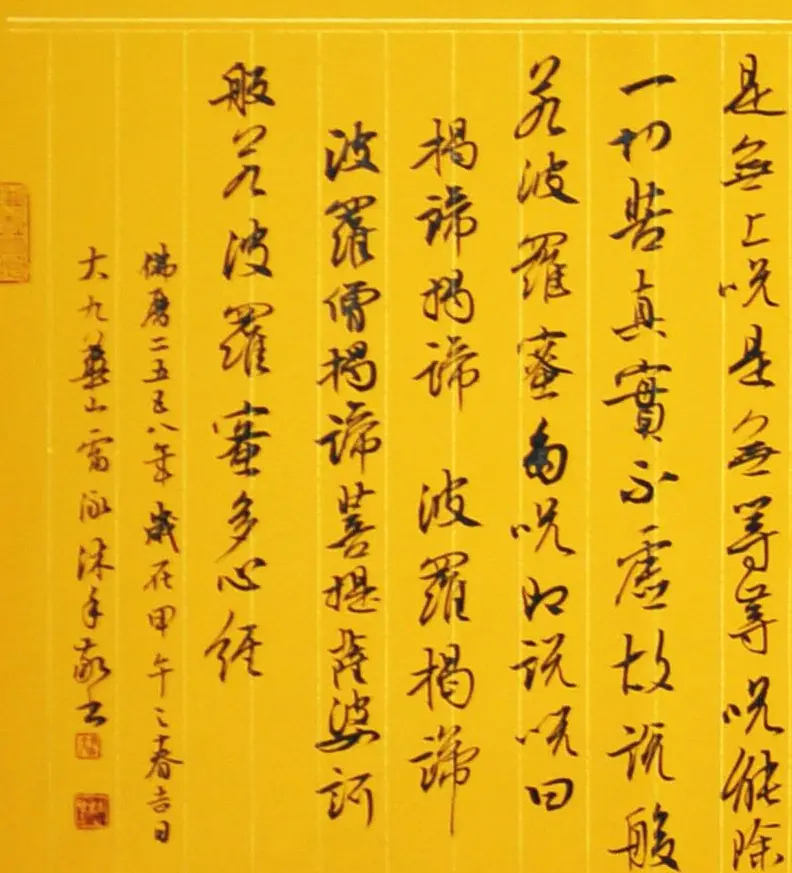 是無上咒是無等等咒能除
一切苦真實不虛故說般
若波羅蜜多咒即說咒曰
揭諦揭諦 波羅揭諦
波羅僧揭諦菩提薩婆訶
般若波羅蜜多心經
佛曆二五五八年歲在甲午之春吉日
大九華山雷泓沐手敬書